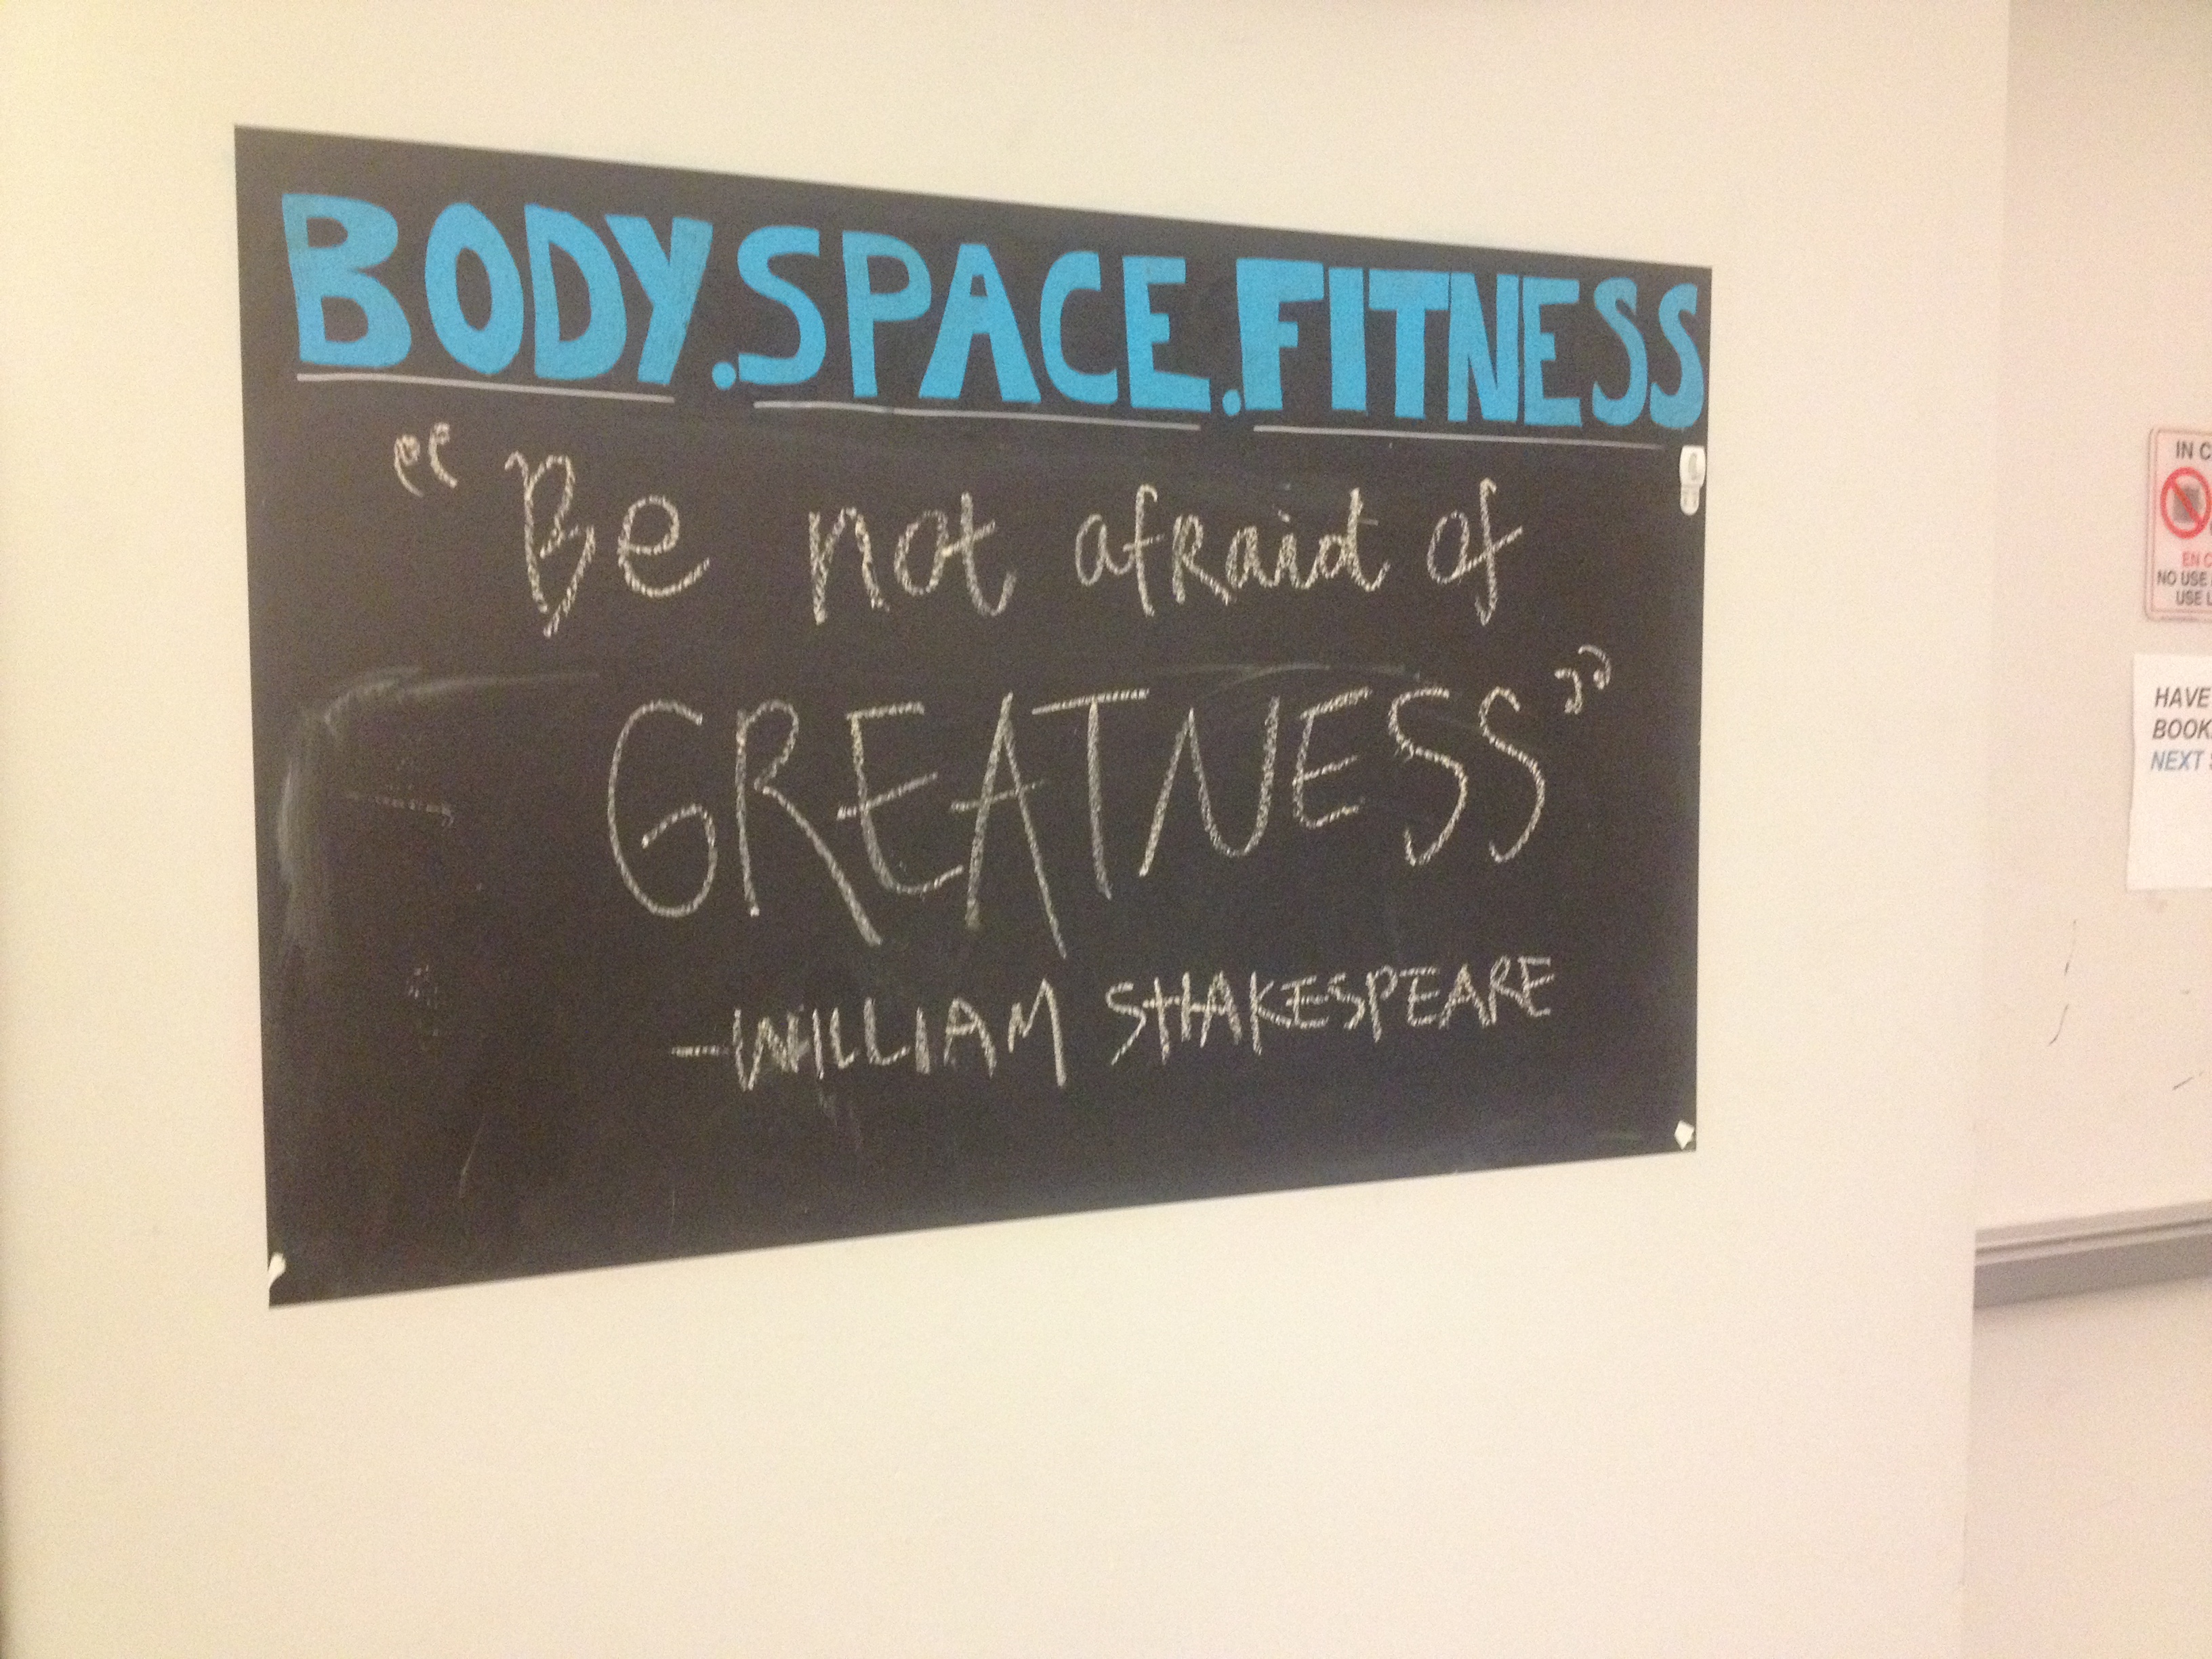 BODY.SPACE.FITNESS
"Be not afraid of
GREATNESS"
-WILLIAM SHAKESPEARE
IN
EN
NO USE
USE
HAVE
BOOK
NEXT